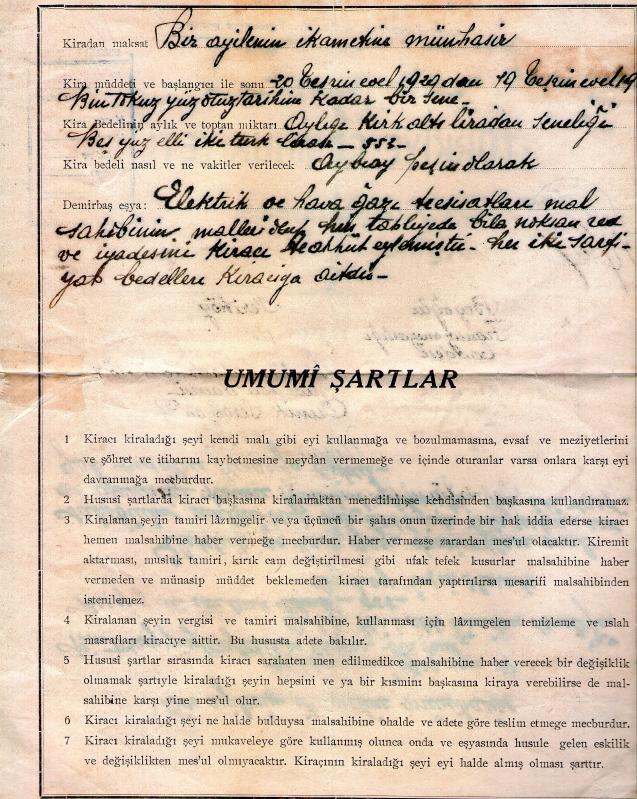 Kiradan maksat Bir ayilenin ikametine münhasir
Kira müddeti ve başlangıcı ile sonu 20 Teşrinievel 1929 dan 19 Teşrinievel 19
Bin Tokuz yüz otuz tarihine Kadar bir sene-
Kira Bedelinin aylık ve toptan miktarı Aylığı Kirk altı liradan seneliği
Beş yuz elli iki turk lirası - 552-
Kira bedeli nasıl ve ne vakitler verilecek Aybay peşin olarak
Demirbaş eşya: Elektrik ve hava gazı tecisatları mal
sahibinin malleri olup her tahliyede bila noksan red
ve iyadesini Kiracı teahhut eylemiştir - her iki sarfi-
yat bedelleri Kiracıya aitdir-
UMUMÎ ŞARTLAR
1 Kiracı kiraladığı şeyi kendi malı gibi eyi kullanmağa ve bozulmamasına, evsaf ve meziyetlerini
ve şöhret ve itibarını kaybetmesine meydan vermemeğe ve içinde oturanlar varsa onlara karşı eyi
davranmağa mecburdur.
2 Hususî şartlarda kiracı başkasına kiralamaktan menedilmişse kendisinden başkasına kullandıramaz.
3 Kiralanan şeyin tamiri lâzımgelir ve ya üçüncü bir şahıs onun üzerinde bir hak iddia ederse kiracı
hemen malsahibine haber vermeğe mecburdur. Haber vermezse zarardan mes'ul olacaktır. Kiremit
aktarması, musluk tamiri, kırık cam değiştirilmesi gibi ufak tefek kusurlar malsahibine haber
vermeden ve münasip müddet beklemeden kiracı tarafından yaptırılırsa mesarifi malsahibinden
istenilemez.
4 Kiralanan şeyin vergisi ve tamiri malsahibine, kullanması için lâzımgelen temizleme ve ıslah
masrafları kiracıye aittir. Bu hususta adete bakılır.
5 Hususî şartlar sırasında kiracı sarahaten men edilmedikce malsahibine haber verecek bir değişiklik
olmamak şartıyle kiraladığı şeyin hepsini ve ya bir kısmini başkasına kiraya verebilirse de mal-
sahibine karşı yine mes'ul olur.
6 Kiracı kiraladığı şeyi ne halde bulduysa malsahibine ohalde ve adete göre teslim etmege mecburdur.
7 Kiracı kiraladığı şeyi mukaveleye göre kullanmış olunca onda ve eşyasında husule gelen eskilik
ve değişiklikten mes'ul olmıyacaktır. Kiraçının kiraladığı şeyi eyi halde almış olması şarttır.